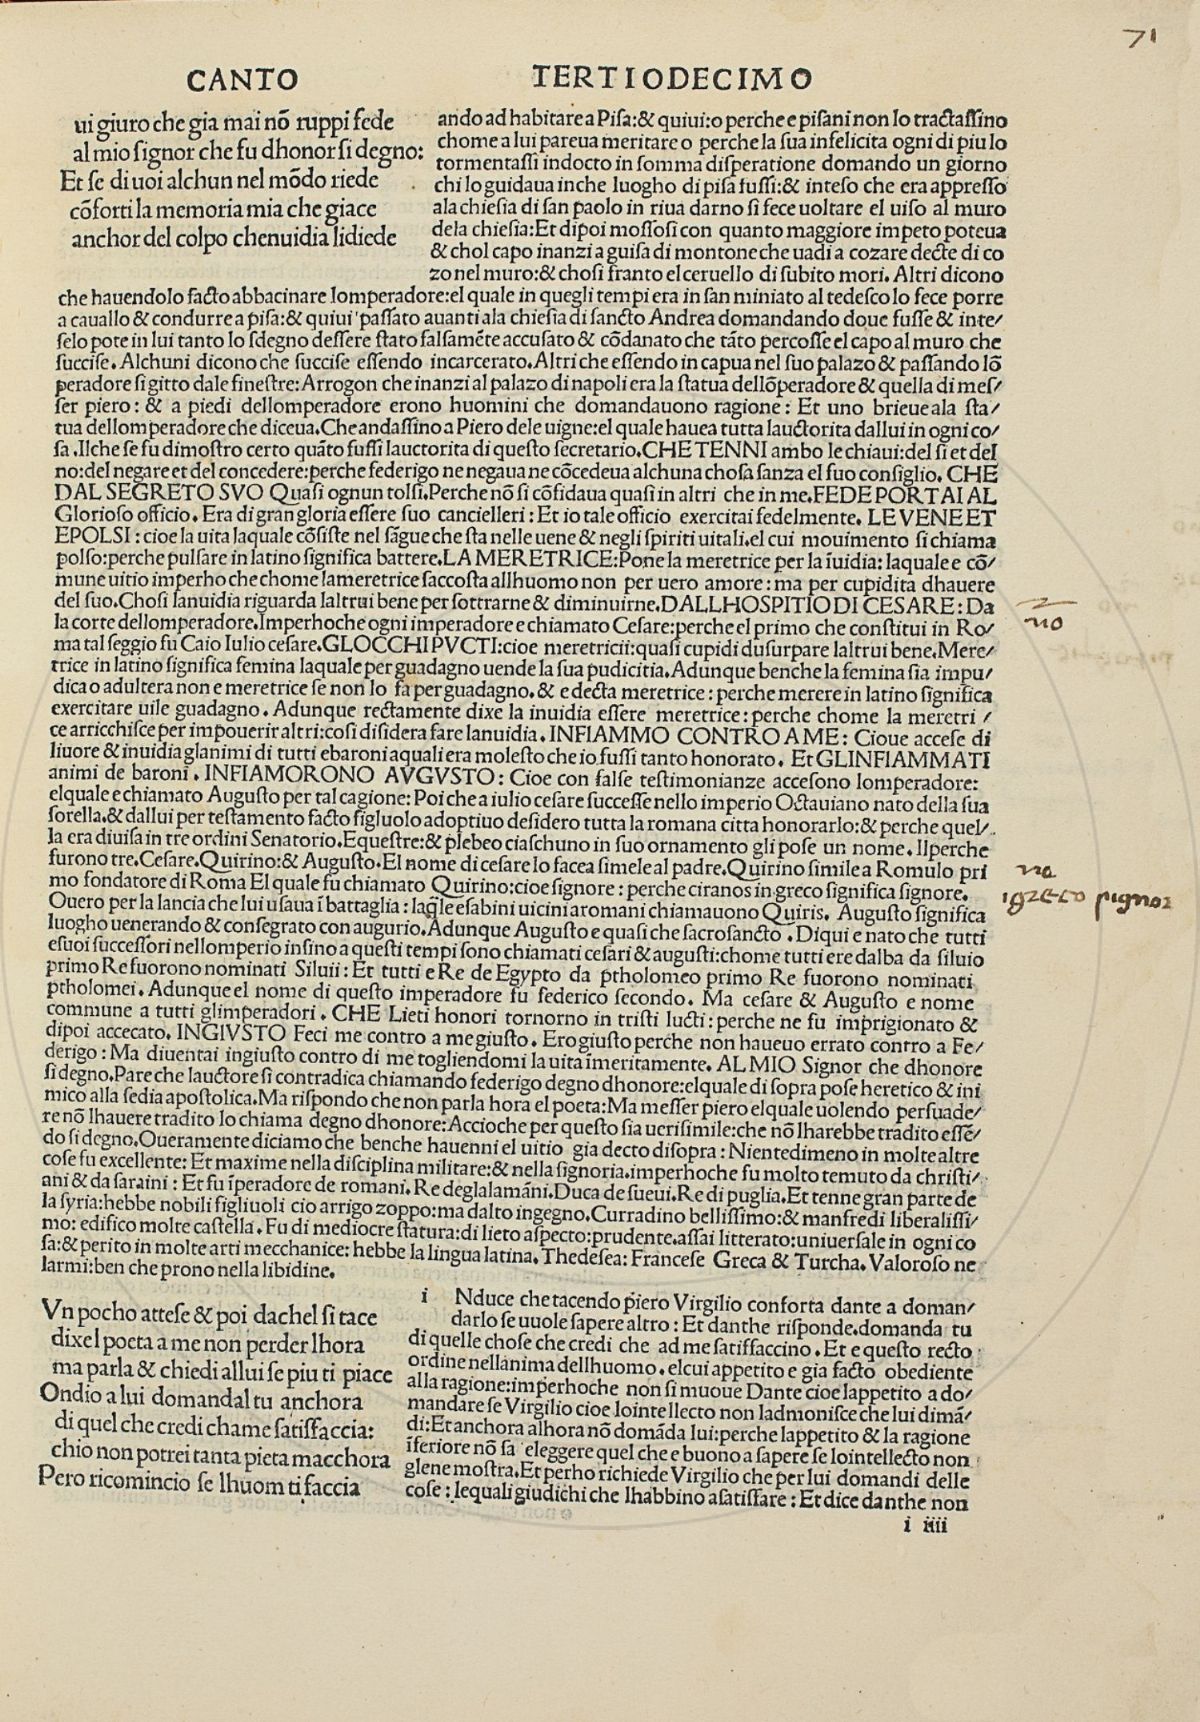 71
CANTO TERTIODECIMO
ui giuro che gia mai nō ruppi fede
al mio signor che fu dhonor si degno:
Et se di uoi alchun nel mōdo riede
cōforti la memoria mia che giace
anchor del colpo chenuidia lidiede
ando ad habitare a Pisa:& quiui:o perche e pisani non lo tractassino
chome a lui pareua meritare o perche la sua infelicita ogni di piu lo
tormentassi indocto in somma disperatione domando un giorno
chi lo guidaua inche luogho di pisa fussi:& inteso che era appresso
ala chiesia di san paolo in riua darno si fece uoltare el uiso al muro
dela chiesia:Et dipoi mossosi con quanto maggiore impeto poteua
& chol capo inanzi a guisa di montone che uadi a cozare decte di co
zo nel muro:& chosi franto el ceruello di subito mori. Altri dicono
che hauendolo facto abbacinare lomperadore:el quale in quegli tempi era in san miniato al tedesco lo fece porre
a cauallo & condurre a pisa:& quiui passato auanti ala chiesia di sancto Andrea domandando doue fusse & inte/
selo pote in lui tanto lo sdegno dessere stato falsamēte accusato & cōdanato che tāto percosse el capo al muro che
succise. Alchuni dicono che succise essendo incarcerato. Altri che essendo in capua nel suo palazo & passando lō
peradore si gitto dale finestre: Arrogon che inanzi al palazo di napoli era la statua dellōperadore & quella di mes/
ser piero: & a piedi dellomperadore erono huomini che domandauono ragione: Et uno brieue ala sta/
tua dellomperadore che diceua. Che andassino a Piero dele uigne:el quale hauea tutta lauctorita dallui in ogni co/
sa. Ilche se fu dimostro certo quāto fussi lauctorita di questo secretario. CHE TENNI ambo le chiaui: del si et del
no:del negare et del concedere:perche federigo ne negaua ne cōcedeua alchuna chosa sanza el suo consiglio. CHE
DAL SEGRETO SVO Quasi ognun tolsi. Perche nō si cōfidaua quasi in altri che in me. FEDE PORTAI AL
Glorioso officio. Era di gran gloria essere suo cancielleri: Et io tale officio exercitai fedelmente. LE VENE ET
E POLSI: cioe la uita laquale cōsiste nel sāgue che sta nelle uene & negli spiriti uitali. el cui mouimento si chiama
polso: perche pulsare in latino significa battere. LA MERETRICE: Pone la meretrice per la īuidia: laquale e cō/
mune uitio imperho che chome lameretrice saccosta allhuomo non per uero amore: ma per cupidita dhauere
del suo. Chosi lanuidia riguarda laltrui bene per sottrarne & diminuirne. DALLHOSPITIO DI CESARE: Da
la corte dellomperadore. Imperhoche ogni imperadore e chiamato Cesare: perche el primo che constitui in Ro/
ma tal seggio fu Caio Iulio cesare. GLOCCHI PVCTI: cioe meretricii: quasi cupidi dusurpare laltrui bene. Mere/
trice in latino significa femina laquale per guadagno uende la sua pudicitia. Adunque benche la femina sia impu/
dica o adultera non e meretrice se non lo fa per guadagno. & e decta meretrice: perche merere in latino significa
exercitare uile guadagno. Adunque rectamente dixe la inuidia essere meretrice: perche chome la meretri /
ce arricchisce per impouerir altri: cosi disidera fare lanuidia. INFIAMMO CONTRO A ME: Cioue accese di
liuore & inuidia glanimi di tutti ebaroni a quali era molesto che io fussi tanto honorato. Et GLINFIAMMATI
animi de baroni. INFIAMORONO AVGVSTO: Cioe con false testimonianze accesono lomperadore:
elquale e chiamato Augusto per tal cagione: Poi che a iulio cesare successe nello imperio Octauiano nato della sua
sorella. & dallui per testamento facto figluolo adoptiuo desidero tutta la romana citta honorarlo: & perche quel/
la era diuisa in tre ordini Senatorio. Equestre: & plebeo ciaschuno in suo ornamento gli pose un nome. Ilperche
furono tre. Cesare. Quirino: & Augusto. El nome di cesare lo facea simele al padre. Quirino simile a Romulo pri
mo fondatore di Roma El quale fu chiamato Quirino: cioe signore: perche ciranos in greco significa signore.
Ouero per la lancia che lui usaua ī battaglia: laq̄le e sabini uicini a romani chiamauono Quiris. Augusto significa
luogho uenerando & consegrato con augurio. Adunque Augusto e quasi che sacrosancto. Di qui e nato che tutti
e suoi successori nellomperio insino a questi tempi sono chiamati cesari & augusti: chome tutti e re dalba da siluio
primo Re fuorono nominati Siluii: Et tutti e Re de Egypto da ptholomeo primo Re fuorono nominati
ptholomei. Adunque el nome di questo imperadore fu federico secondo. Ma cesare & Augusto e nome
commune a tutti glimperadori. CHE Lieti honori tornorno in tristi lucti: perche ne fu imprigionato &
dipoi accecato. INGIVSTO Feci me contro a me giusto. Ero giusto perche non haueuo errato contro a Fe/
derigo: Ma diuentai ingiusto contro di me togliendomi la uita īmeritamente. AL MIO Signor che dhonore
si degno. Pare che lauctore si contradica chiamando federigo degno dhonore: elquale di sopra pose heretico & ini
mico alla sedia apostolica. Ma rispondo che non parla hora el poeta: Ma messer piero elquale uolendo persuade/
re nō lhauere tradito lo chiama degno dhonore: Accioche per questo sia uerisimile: che nō lharebbe tradito essē/
do si degno. Oueramente diciamo che benche hauenni el uitio gia decto disopra: Nientedimeno in molte altre
cose fu excellente: Et maxime nella disciplina militare: & nella signoria. imperhoche fu molto temuto da christi/
ani & da saraini: Et fu īperadore de romani. Re deglalamāni. Duca de sueui. Re di puglia. Et tenne gran parte de
la syria: hebbe nobili figliuoli cio arrigo zoppo: ma dalto ingegno. Curradino bellissimo: & manfredi liberalissi/
mo: edifico molte castella. Fu di mediocre statura: di lieto aspecto: prudente. assai litterato: uniuersale in ogni co
sa: & perito in molte arti mecchanice: hebbe la lingua latina. Thedesea: Francese Greca & Turcha. Valoroso ne
larmi: ben che prono nella libidine.
no
no
igreco signor
Vn pocho attese & poi dachel si tace
dixel poeta a me non perder lhora
ma parla & chiedi allui se piu ti piace
Ondio a lui domandal tu anchora
di quel che credi chame satisfaccia:
chio non potrei tanta pieta macchora
Pero ricomincio se lhuom ti faccia
i Nduce che tacendo piero Virgilio conforta dante a doman/
darlo se uuole sapere altro: Et danthe risponde. domanda tu
di quelle chose che credi che ad me satisfaccino. Et e questo recto
ordine nellanima dellhuomo. el cui appetito e gia facto obediente
alla ragione: imperhoche non si muoue Dante cioe lappetito a do/
mandare se Virgilio cioe lointellecto non ladmonisce che lui dimā/
di: Et anchora alhora nō domāda lui: perche lappetito & la ragione
īferiore nō sa eleggere quel che e buono a sapere se lointellecto non
glene mostra. Et perho richiede Virgilio che per lui domandi delle
cose: lequali giudichi che lhabbino a satisfare: Et dice danthe non
i iiii